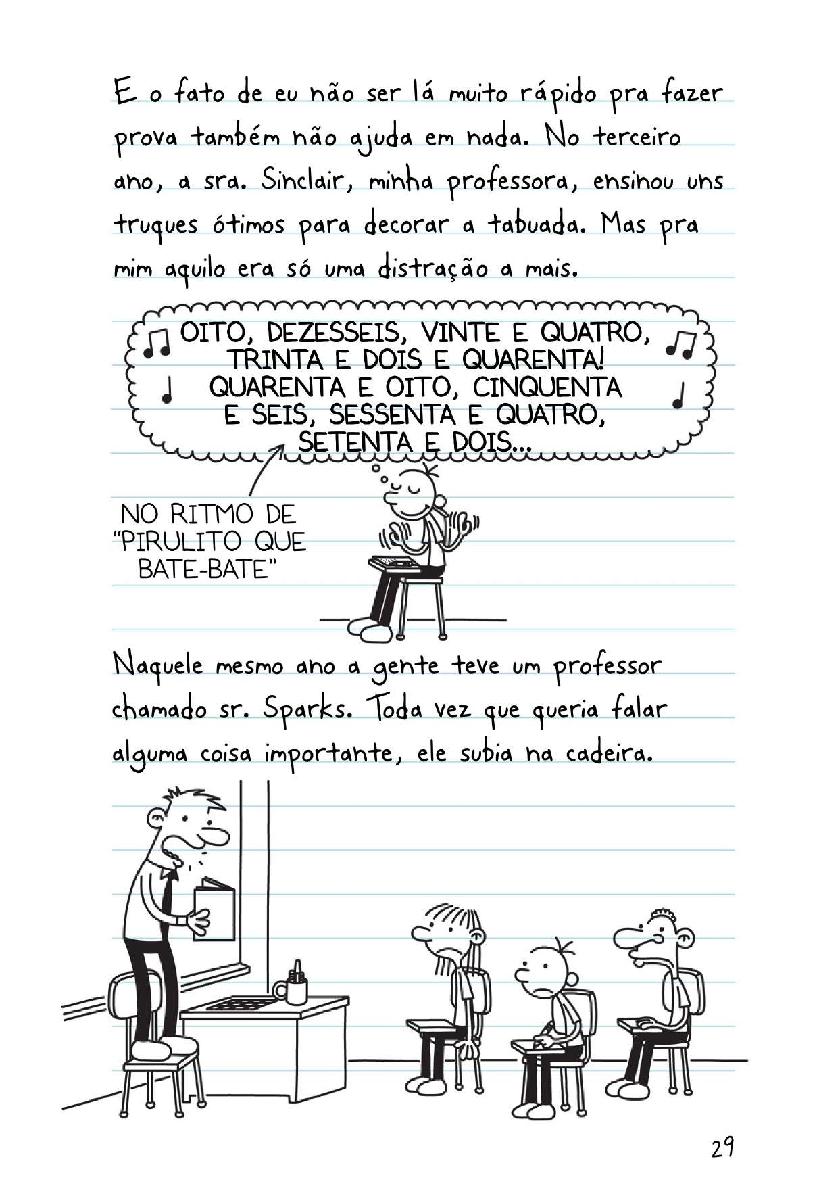 E o fato de eu não ser lá muito rápido pra fazer
prova também não ajuda em nada. No terceiro
ano, a sra. Sinclair, minha professora, ensinou uns
truques ótimos para decorar a tabuada. Mas pra
mim aquilo era só uma distração a mais.
OITO, DEZESSEIS, VINTE E QUATRO,
TRINTA E DOIS E QUARENTA!
QUARENTA E OITO, CINQUENTA
E SEIS, SESSENTA E QUATRO,
SETENTA E DOIS...
NO RITMO DE
"PIRULITO QUE
BATE-BATE"
Naquele mesmo ano a gente teve um professor
chamado sr. Sparks. Toda vez que queria falar
alguma coisa importante, ele subia na cadeira.
29